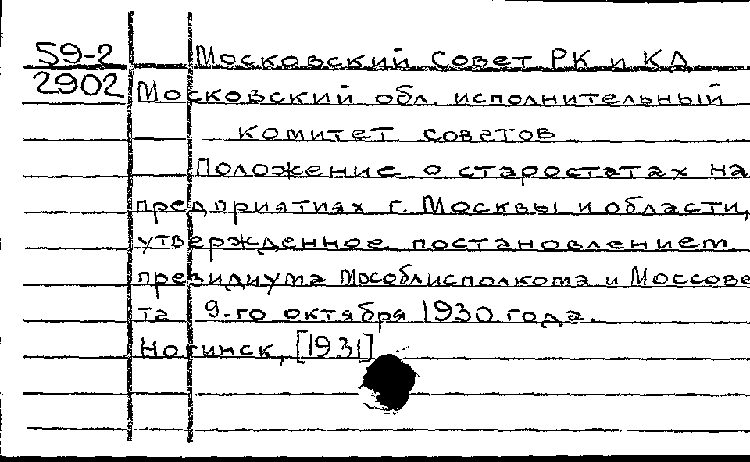 59-2 Московский Совет РК и КД
2902 Московский обл. исполнительный
комитет советов
Положение о старостатах на
предприятиях г. Москвы и области,
утвержденное постановлением
президиума Мособлисполкома и Моссове
та 9-го октября 1930 года.
Ногинск, [1931]